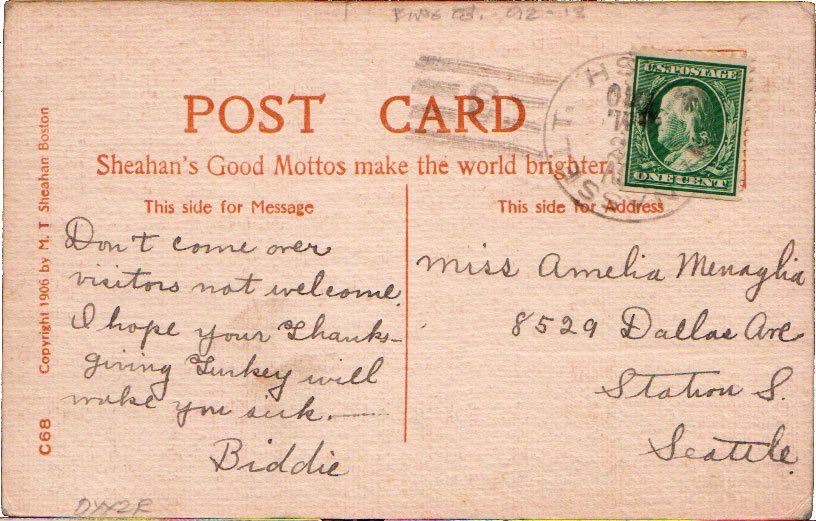 POST CARD
Sheahan's Good Mottos make the world brighter
This side for Message
This side for Address
U.S. POSTAGE
ONE CENT
Copyright 1906 by M. T. Sheahan Boston
C68
Don't come over
visitors not welcome.
I hope your Thanks-
giving Turkey will
make you sick.
Biddie
Miss Amelia Menaglia
8529 Dallas Ave
Station S.
Seattle.